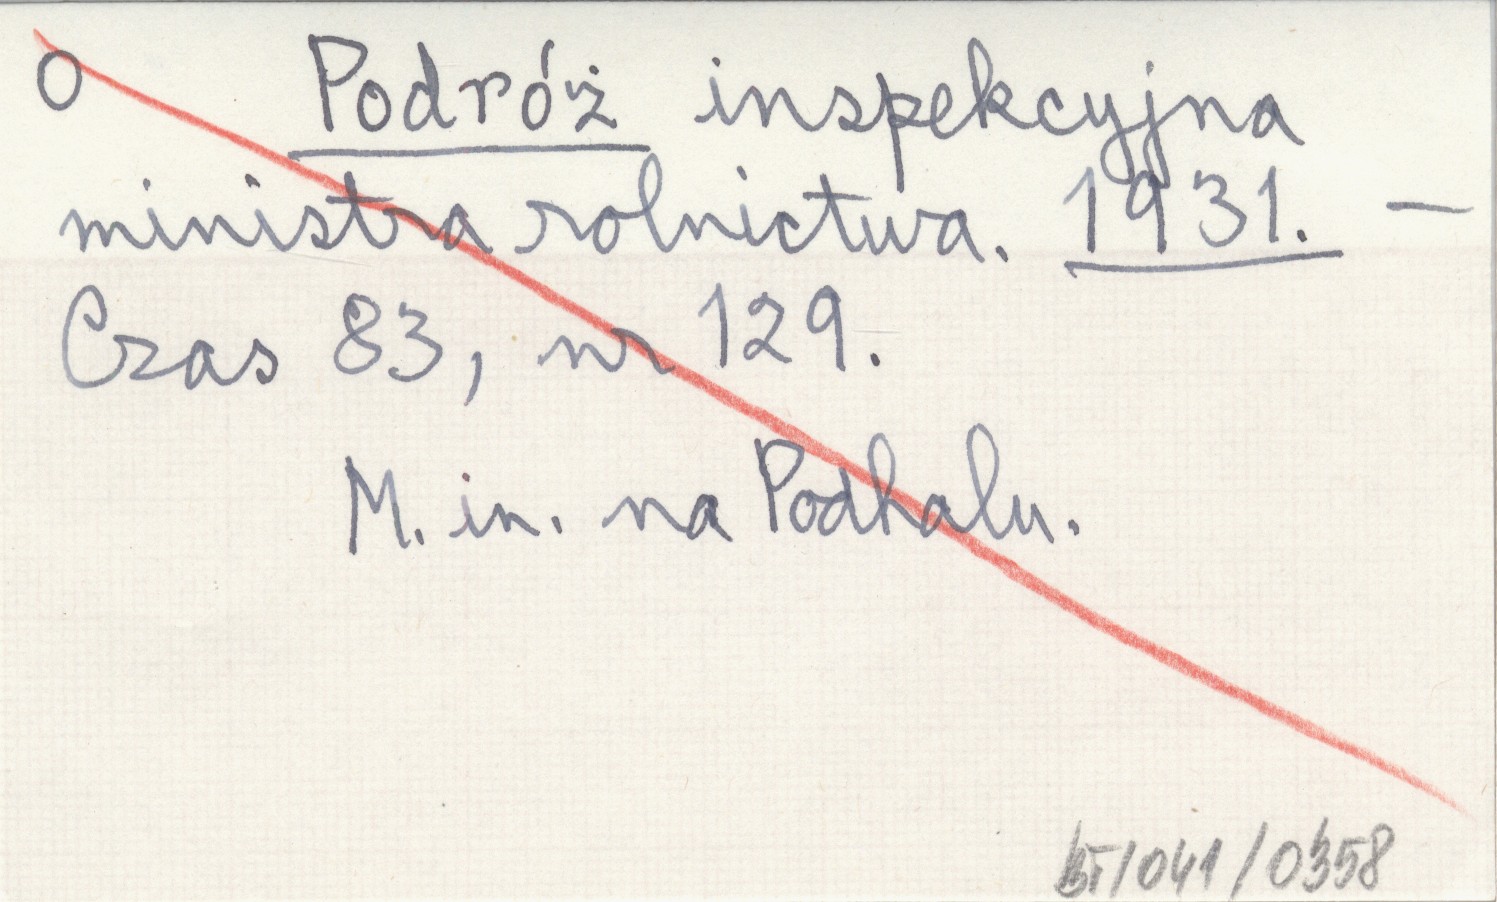 O Podróż inspekcyjna
ministra rolnictwa. 1931. —
Czas 83, nr 129.
M. in. na Podhalu.
/041/0358